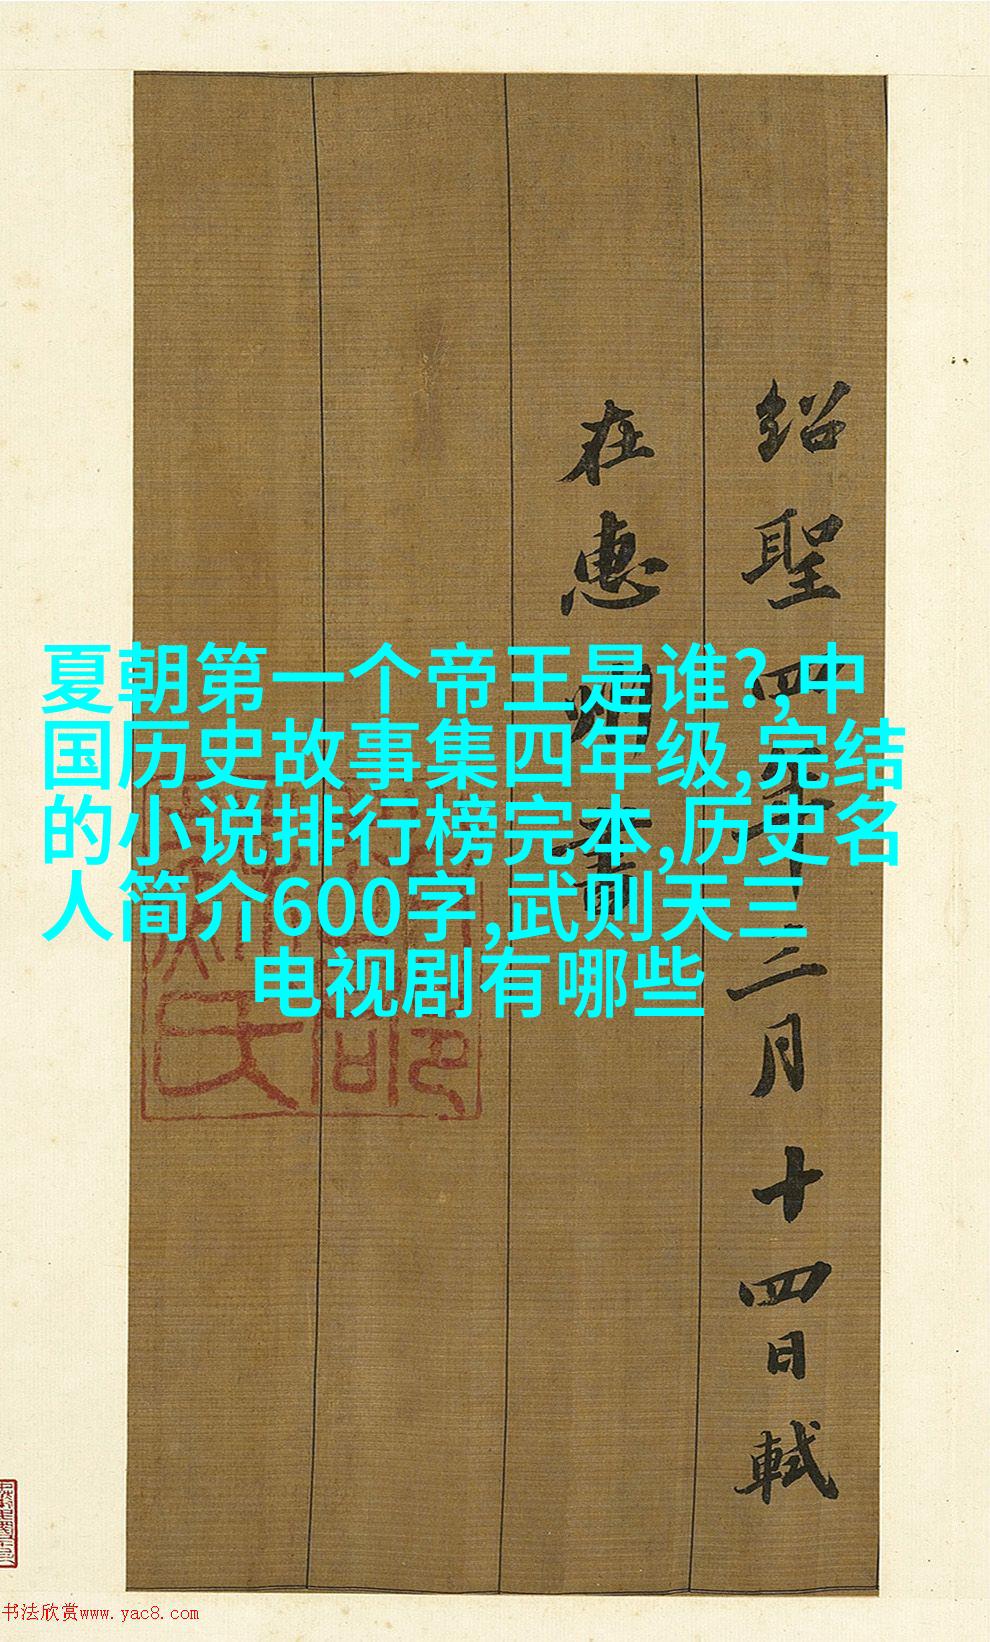 夏朝第一个帝王是谁?,中
国历史故事集四年级,完结
的小说排行榜完本,历史名
人简介600字,武则天三
电视剧有哪些
绍聖四年二月十四日軾
在惠州書
书法欣赏www.yac8.com